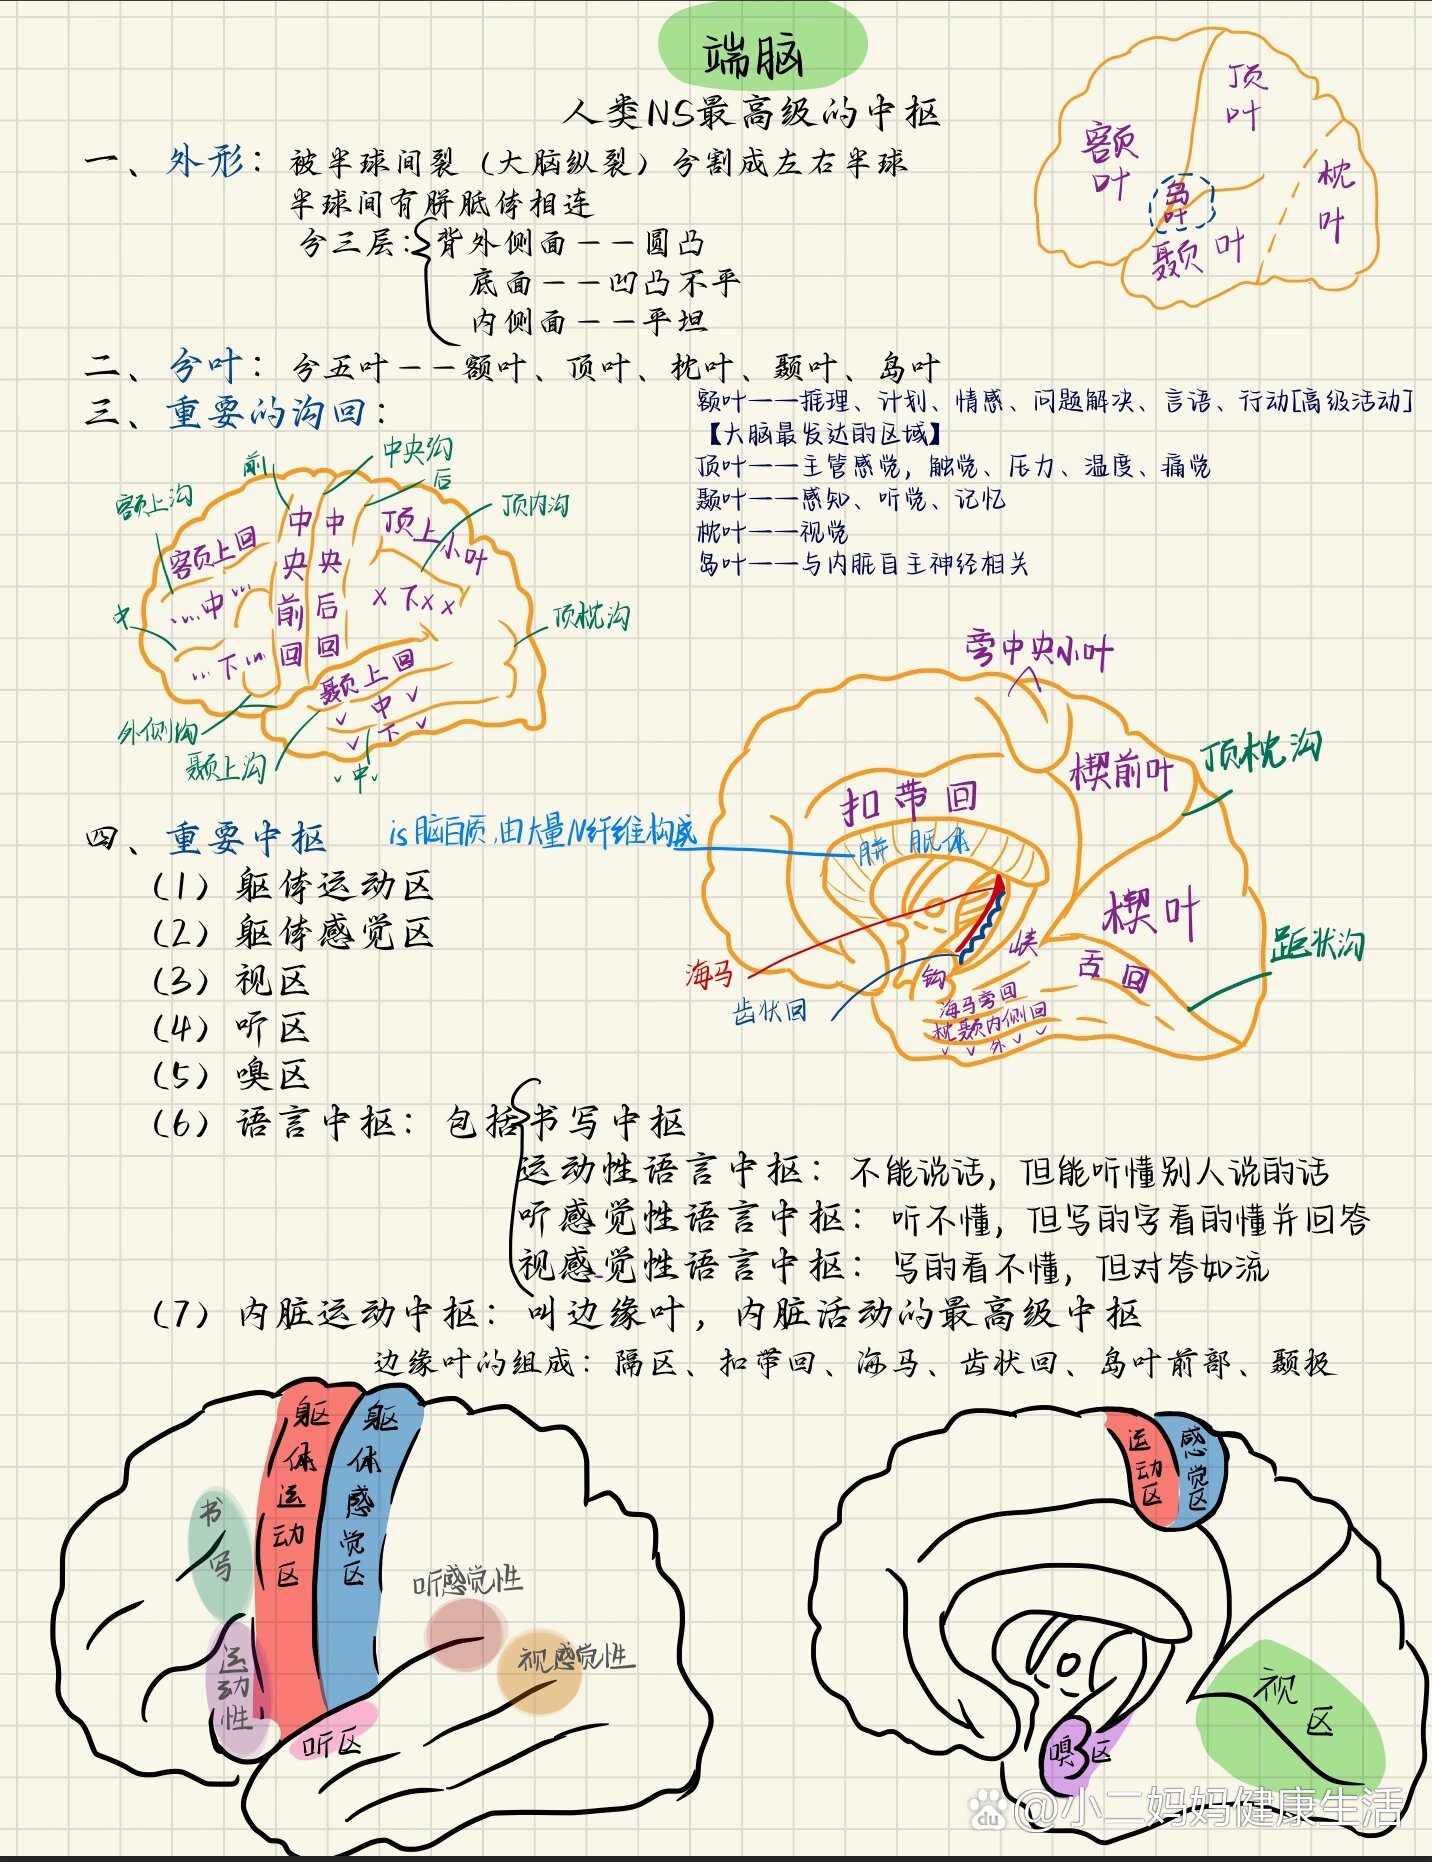 端脑
人类NS最高级的中枢
一、外形：被半球间裂（大脑纵裂）分割成左右半球
半球间有胼胝体相连
分三层：背外侧面——圆凸
底面——凹凸不平
内侧面——平坦
顶叶
额叶
岛叶
枕叶
颞叶
二、分叶：分五叶——额叶、顶叶、枕叶、颞叶、岛叶
三、重要的沟回：
额叶——推理、计划、情感、问题解决、言语、行动[高级活动]
【大脑最发达的区域】
顶叶——主管感觉，触觉、压力、温度、痛觉
颞叶——感知、听觉、记忆
枕叶——视觉
岛叶——与内脏自主神经相关
前
中央沟
后
额上沟
顶内沟
额上回
中央前回
中央后回
顶上小叶
…中…
x下x x
中
顶枕沟
…下…
颞上回
✓中✓
✓下✓
外侧沟
颞上沟
✓中✓
旁中央小叶
楔前叶
顶枕沟
扣带回
四、重要中枢
is脑白质，由大量N纤维构成
胼胝体
(1) 躯体运动区
(2) 躯体感觉区
(3) 视区
(4) 听区
(5) 嗅区
楔叶
距状沟
海马
峡
舌回
钩
齿状回
海马旁回
枕颞内侧回
✓✓外✓✓
(6) 语言中枢：包括书写中枢
运动性语言中枢：不能说话，但能听懂别人说的话
听感觉性语言中枢：听不懂，但写的字看的懂并回答
视感觉性语言中枢：写的看不懂，但对答如流
(7) 内脏运动中枢：叫边缘叶，内脏活动的最高级中枢
边缘叶的组成：隔区、扣带回、海马、齿状回、岛叶前部、颞极
躯体运动区
躯体感觉区
书写
听感觉性
运动性
视感觉性
听区
运动区
感觉区
视区
嗅区
du @小二妈妈健康生活